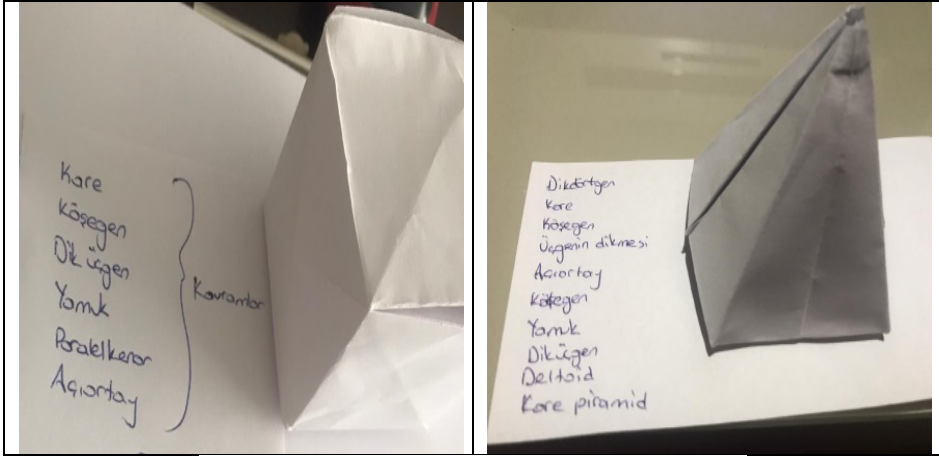 Kare
Köşegen
Dik üçgen
Yamuk
Paralelkenar
Açıortay
Kavramlar
Dikdörtgen
Kare
Köşegen
Üçgenin dikmesi
Açıortay
Köşegen
Yamuk
Dik üçgen
Deltoid
Kare piramid